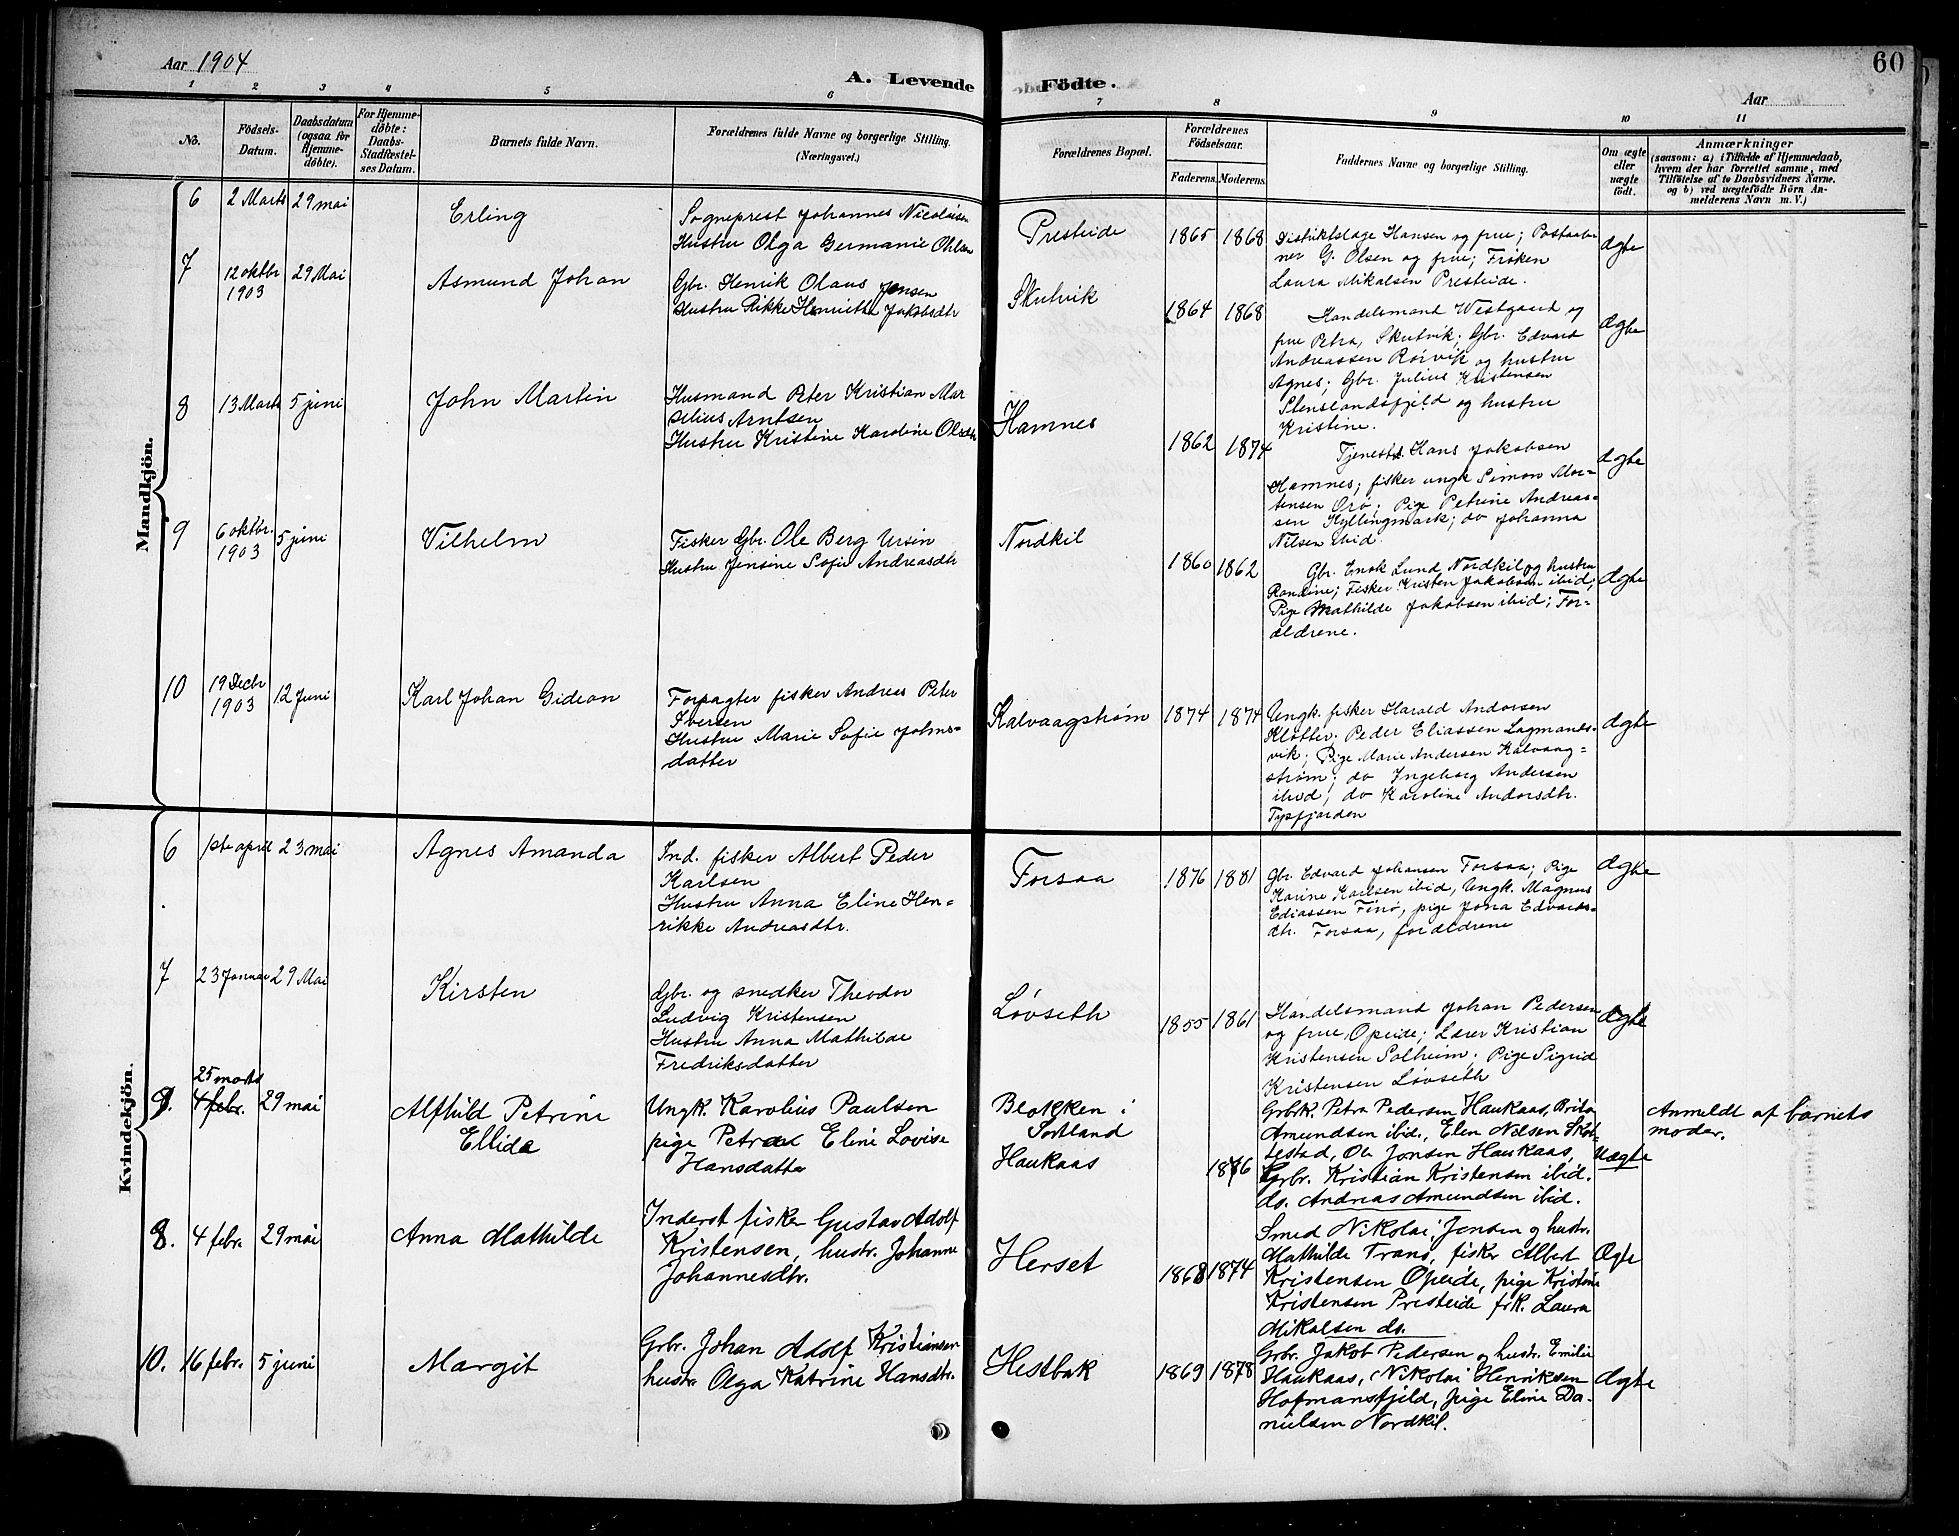 Aar 1904
A. Levende Födte.
60
Aar
1 2 3 4 5 6 7 8 9 10 11
No.
Födsels-Datum.
Daabsdatum (ogsaa for Hjemme-döbte).
For Hjemme-döbte: Daabs-Stadfæstel-ses Datum.
Barnets fulde Navn.
Forældrenes fulde Navne og borgerlige Stilling. (Næringsvei.)
Forældrenes Bopæl.
Forældrenes Födselsaar.
Faderens. Moderens.
Faddernes Navne og borgerlige Stilling.
Om ægte eller uægte födt.
Anmærkninger
(saasom: a) i Tilfælde af Hjemmedaab,
hvem der har forrettet samme, med
Tilföielse af to Daabsvidners Navne.
og b) ved uægtefödte Börn An-
melderens Navn m. V.)
Mandkjön.
6 2 Marts 29 mai
Erling
Sogneprest Johannes Nicolaisen
Hustru Olga Germanie Ohlsen
Presteide
1865 1868
Distriktslæge Hansen og frue; Postaab-
ner G. Olsen og frue; Frøken
Laura Mikalsen Presteide.
ægte
7 12 oktbr 1903 29 Mai
Asmund Johan
Gbr. Henrik Olaus Jensen
Hustru Rikke Henriette Jakobsdtr
Skutvik
1864 1868
Handelsmand Westgaard og
frue Petra, Skutvik; Gbr. Edvard
Andreassen Rørvik og hustru
Agnes; Gbr. Julius Kristensen
Stenslandsfjeld og hustru
Kristine.
ægte
8 13 Marts 5 juni
John Martin
Husmand Peter Kristian Mar
silius Arntsen
Hustru Kristine Karoline Olsdtr
Hamnes
1862 1874
Tjenestd. Hans Jakobsen
Hamnes; fisker ungk Simon Mor-
tensen Orø; Pige Petrine Andreas-
sen Kyllingmark; do Johanna
Nilsen ibid.
ægte
9 6 oktbr. 1903 5 juni
Vilhelm
Fisker Gbr. Ole Berg Ursin
Hustru Jensine Sofie Andreasdtr
Nordkil
1860 1862
Gbr. Enok Lund Nordkil og hustru
Randine; Fisker Kristen Jakobsen ibid;
Pige Mathilde Jakobsen ibid; For-
ældrene.
ægte
10 19 Decbr 1903 12 Juni
Karl Johan Gideon
Forpagter fisker Andreas Peter
Iversen
Hustru Marie Sofie Johns-
datter
Kalvaagstrøm
1874 1874
Ungk. fisker Harald Andorsen
Klotter. Peder Eliassen Lagmands-
vik; Pige Marie Andersen Kalvaag-
strøm; do Ingeborg Andersen
ibid; do Karoline Andorsdtr.
Tysfjorden
ægte
Kvindekjön.
6 1ste april 23 mai
Agnes Amanda
Ind. fisker Albert Peder
Karlsen
Hustru Anna Eline Hen-
rikke Andreasdtr.
Forsaa
1876 1881
Gbr. Edvard Johansen Forsaa; Pige
Karine Karlsen ibid, Ungk. Magnus
Ediassen Finø, pige Jona Edvards-
dtr. Forsaa, forældrene
ægte
7 23 Januar 29 Mai
Kirsten
Gbr. og snedker Theodor
Ludvig Kristensen
Hustru Anna Mathilde
Fredriksdatter
Løvseth
1855 1861
Handelsmand Johan Pedersen
og frue, Opeide; Lærer Kristian
Kristensen Solheim; Pige Sigrid
Kristensen Løvseth
ægte
9. 25 marts 4 febr. 29 mai
Alfhild Petrine
Ellida
Ungk. Karolius Paulsen
pige Petra Eline Lovise
Hansdatter
Blokken i
Sortland
Haukaas
1876
Grbsk. Petra Pedersen Haukaas, Brita
Amundsen ibid., Elen Nilsen Skot-
testad, Ole Jonsen Haukaas,
Grbr. Kristian Kristensen ibid.
ds. Andreas Amundsen ibid.
Uægte
Anmeldt af barnets
moder.
8. 4 febr. 29 mai
Anna Mathilde
Inderst fisker Gustav Adolf
Kristensen, hustr. Johanne
Johannesdtr.
Herset
1868 1874
Smed Nikolai Jensen og hustr.
Mathilde Tranø, fisker Albert
Kristensen Opeide, pige Kristine
Kristensen Presteide frk. Laura
Mikalsen ds.
Ægte
10. 16 febr. 5 juni
Margit
Grbr. Johan Adolf Kristiansen
hustr. Olga Katrine Hansdtr.
Hestbak
1869 1878
Grbr. Jakob Pedersen og hustr. Emilie
Haukaas, Nikolai Henriksen
Hofmansfjeld, pige Eline Da-
nielsen Nordkil.
ægte